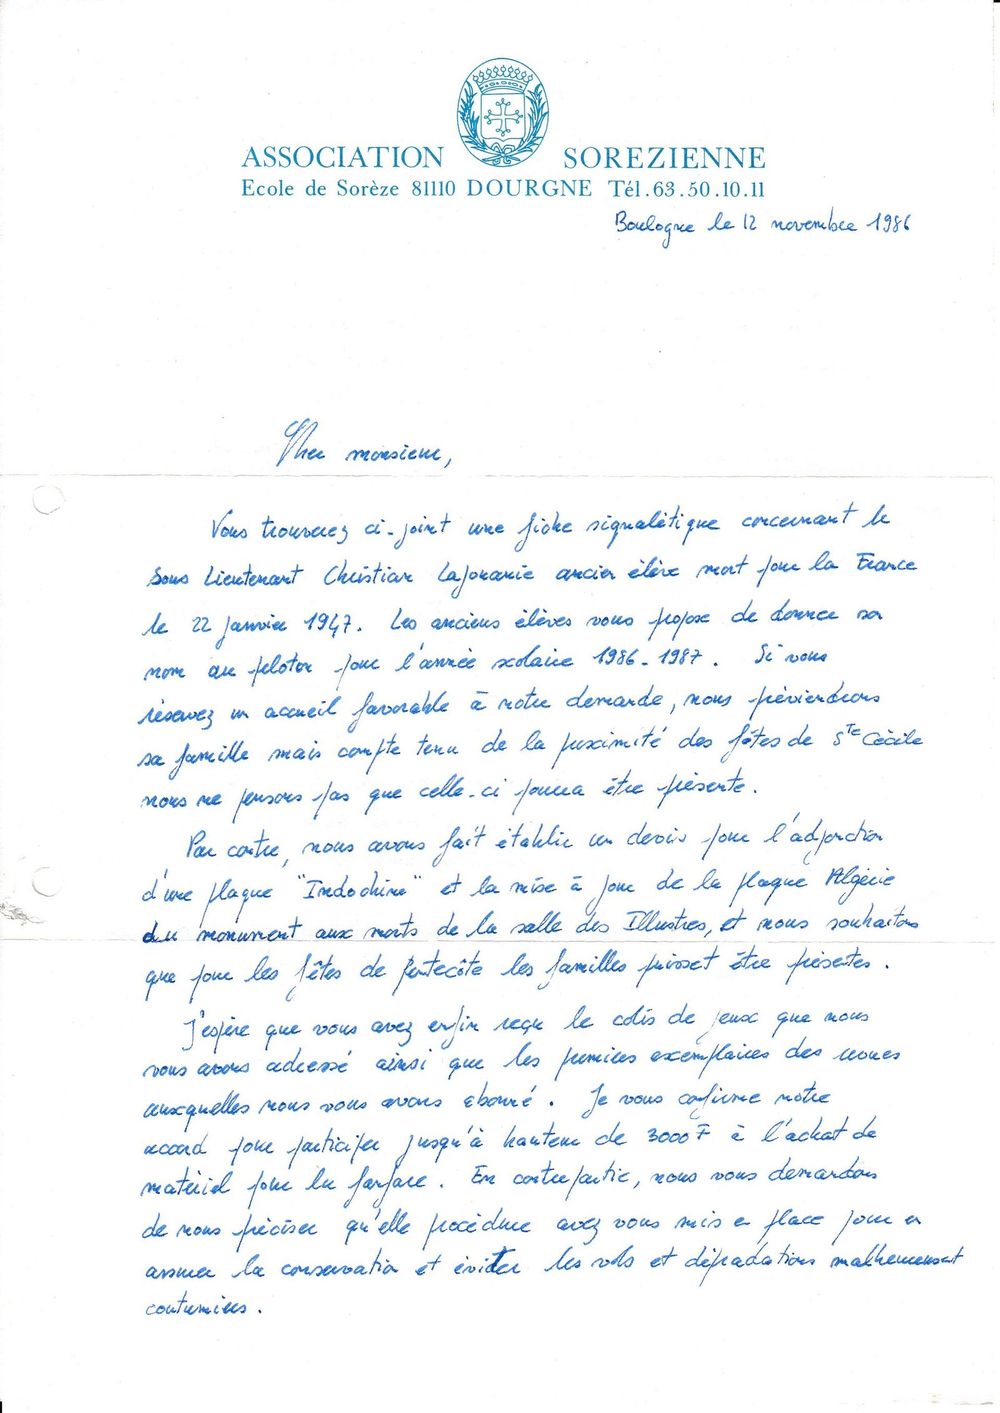 ASSOCIATION SOREZIENNE
Ecole de Sorèze 81110 DOURGNE Tél. 63.50.10.11
Boulogne le 12 novembre 1986
Cher monsieur,
Vous trouverez ci-joint une fiche signalétique concernant le
Sous Lieutenant Christian Lajonanie ancien élève mort pour la France
le 22 janvier 1947. Les anciens élèves vous propose de donner son
nom au peloton pour l'année scolaire 1986-1987. Si vous
réservez un accueil favorable à notre demande, nous préviendrons
sa famille mais compte tenu de la proximité des fêtes de Ste Cécile
nous ne pensons pas que celle-ci pourra être présente.
Par contre, nous avons fait établir un devis pour l'adjonction
d'une plaque "Indochine" et la mise à jour de la plaque Algérie
du monument aux morts de la salle des Illustres, et nous souhaitons
que pour les fêtes de Pentecôte les familles puisset être présentes.
J'espère que vous avez enfin reçu le colis de jeux que nous
vous avons adressé ainsi que les premiers exemplaires des revues
auxquelles nous vous avons abonné. Je vous confirme notre
accord pour participer jusqu'à hauteur de 3000 F à l'achat de
matériel pour la fanfare. En contrepartie, nous vous demandons
de nous préciser qu'elle procédure avez vous mis en place pour en
assurer la conservation et éviter les vols et dégradations malheureusement
coutumiers.